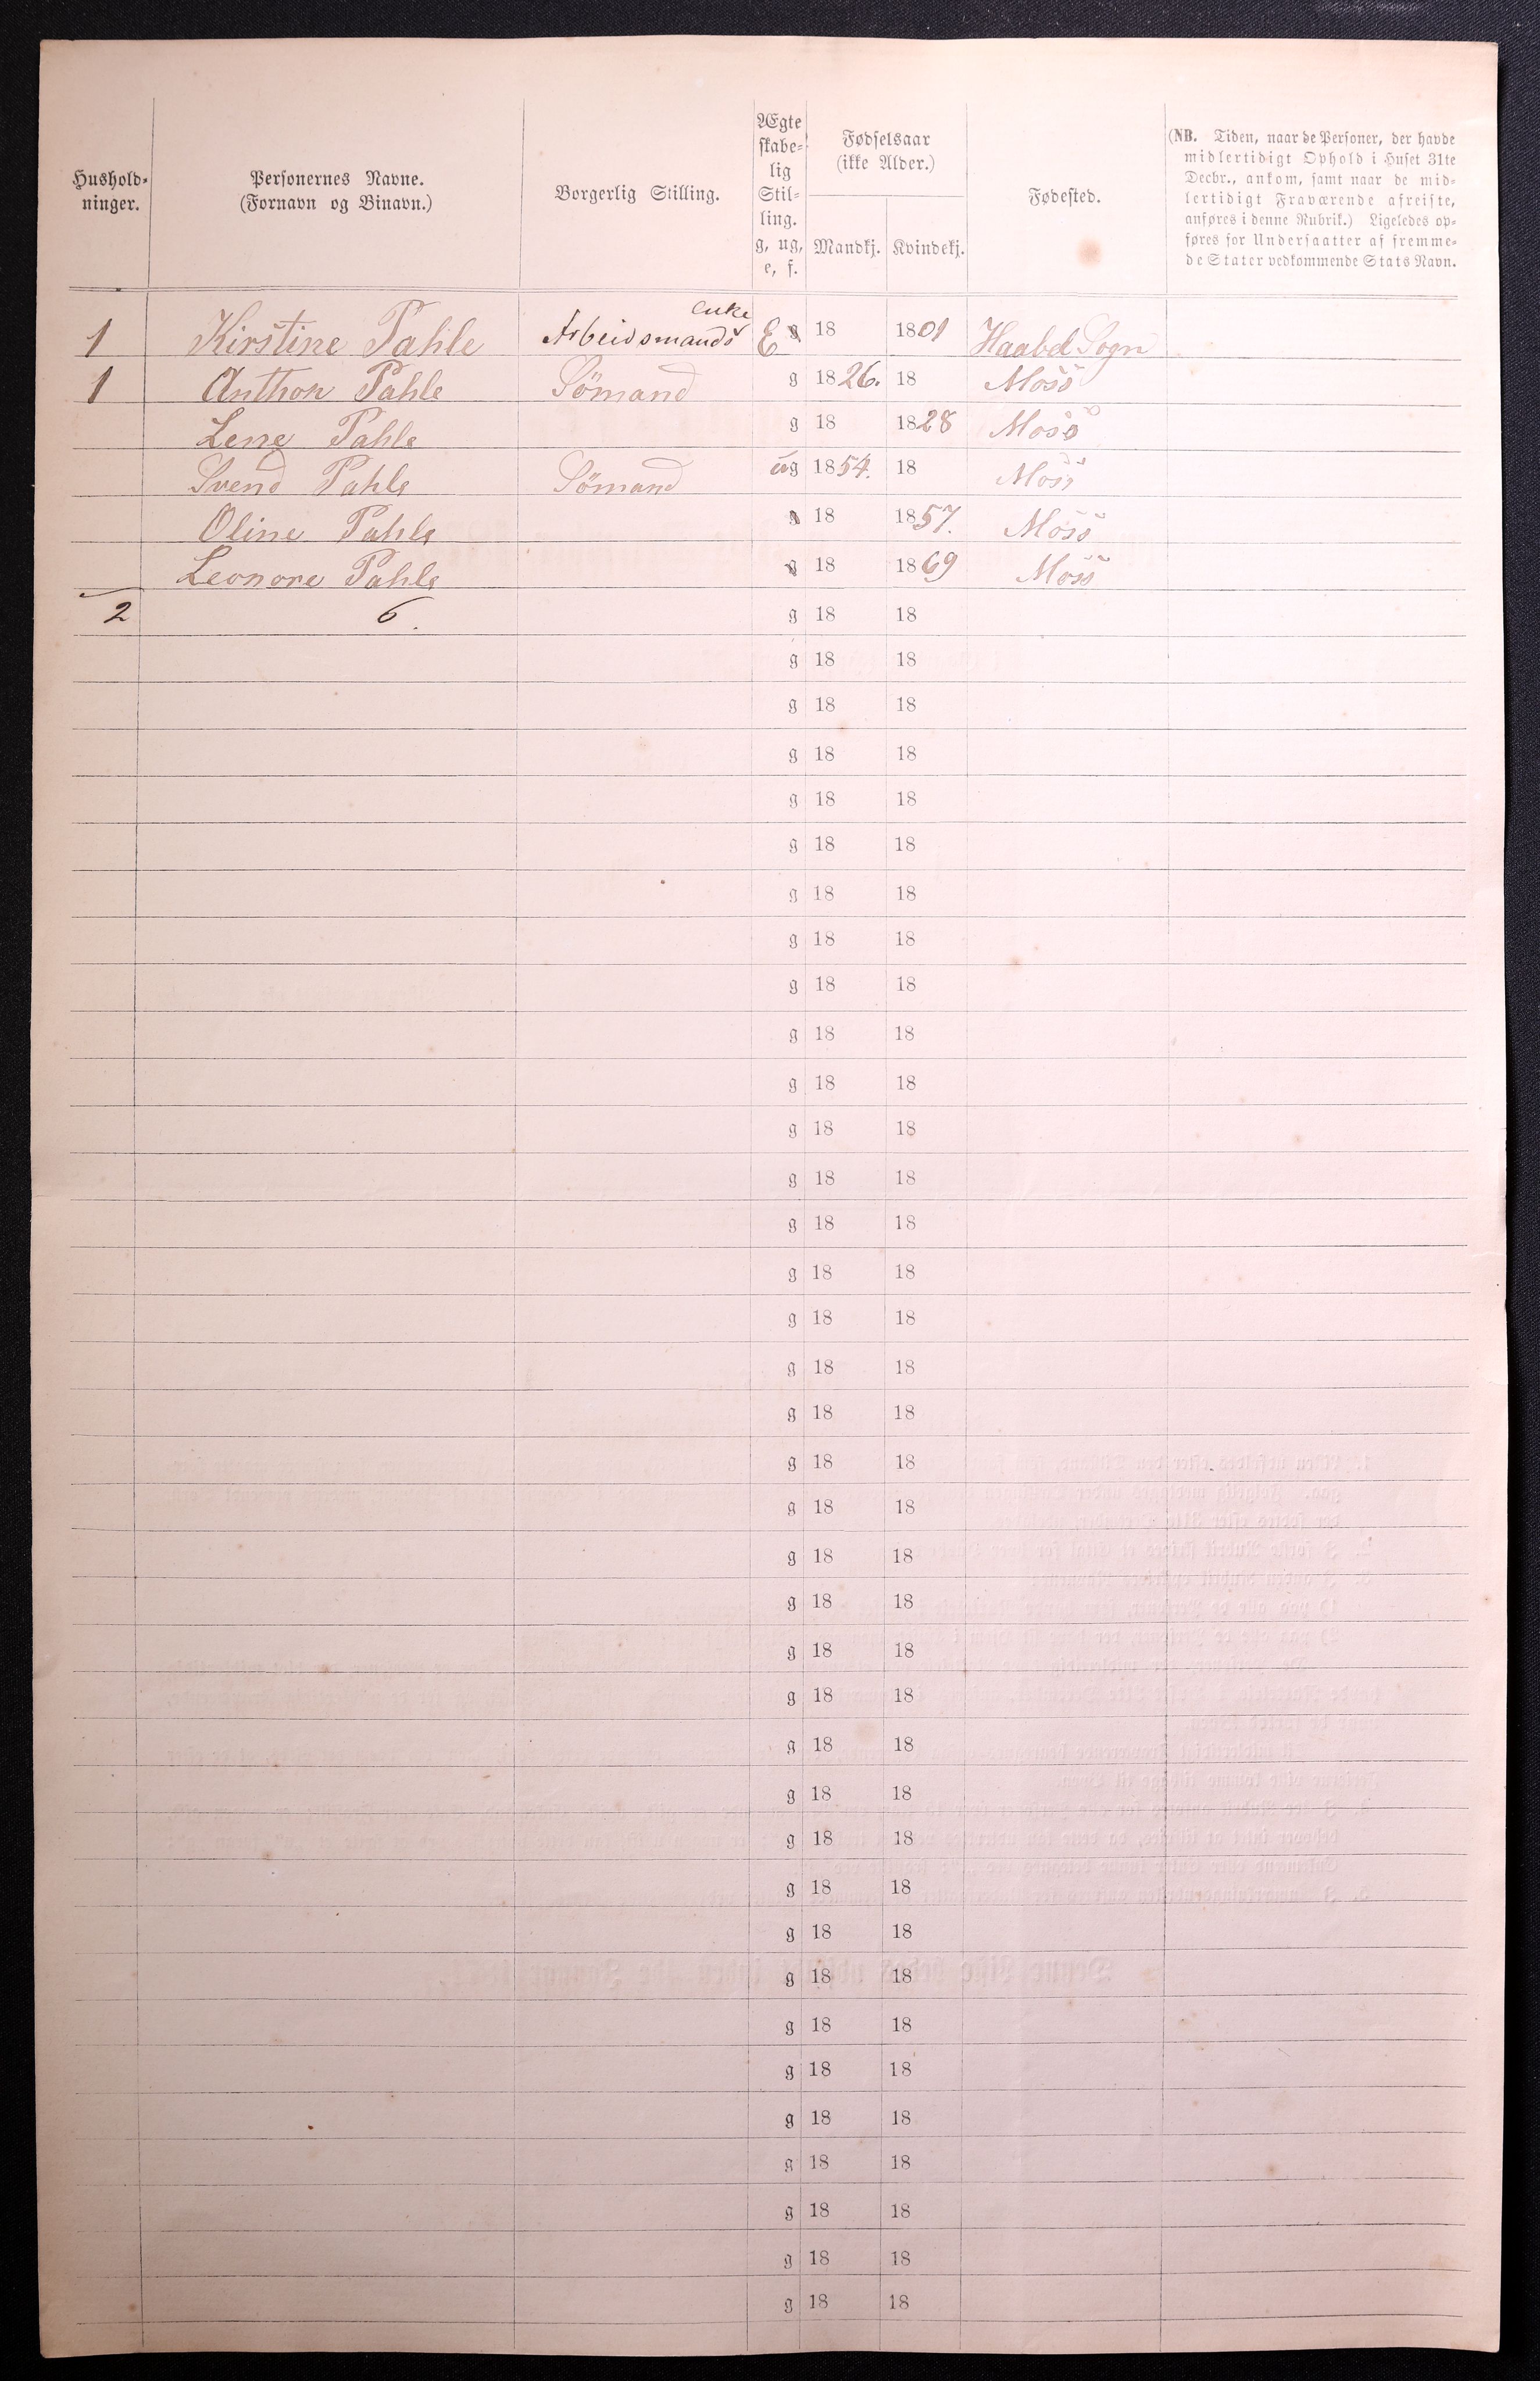 Hushold-
ninger.
Personernes Navne.
(Fornavn og Binavn.)
Borgerlig Stilling.
Ægte
skabe-
lig
Stil-
ling.
g, ug,
e, f.
Fødselsaar
(ikke Alder.)
Mandkj. Kvindekj.
Fødested.
(NB. Tiden, naar de Personer, der havde
midlertidigt Ophold i Huset 31te
Decbr., ankom, samt naar de mid-
lertidigt Fraværende afreiste,
anføres i denne Rubrik.) Ligeledes op-
føres for Undersaatter af fremme-
de Stater vedkommende Stats Navn.
enke
1 Kirstine Pahle Arbeidsmands E g 18 1801 Haabøl Sogn
1 Anthon Pahle Sömand g 1826. 18 Moss
Lene Pahle g 18 1828 Moss
Svend Pahle Sömand ug 1854. 18 Moss
Oline Pahle g 18 1857. Moss
Leonore Pahle g 18 1869 Moss
2 6. g 18 18
g 18 18
g 18 18
g 18 18
g 18 18
g 18 18
g 18 18
g 18 18
g 18 18
g 18 18
g 18 18
g 18 18
g 18 18
g 18 18
g 18 18
g 18 18
g 18 18
g 18 18
g 18 18
g 18 18
g 18 18
g 18 18
g 18 18
g 18 18
g 18 18
g 18 18
g 18 18
g 18 18
g 18 18
g 18 18
g 18 18
g 18 18
g 18 18
g 18 18
g 18 18
g 18 18
g 18 18